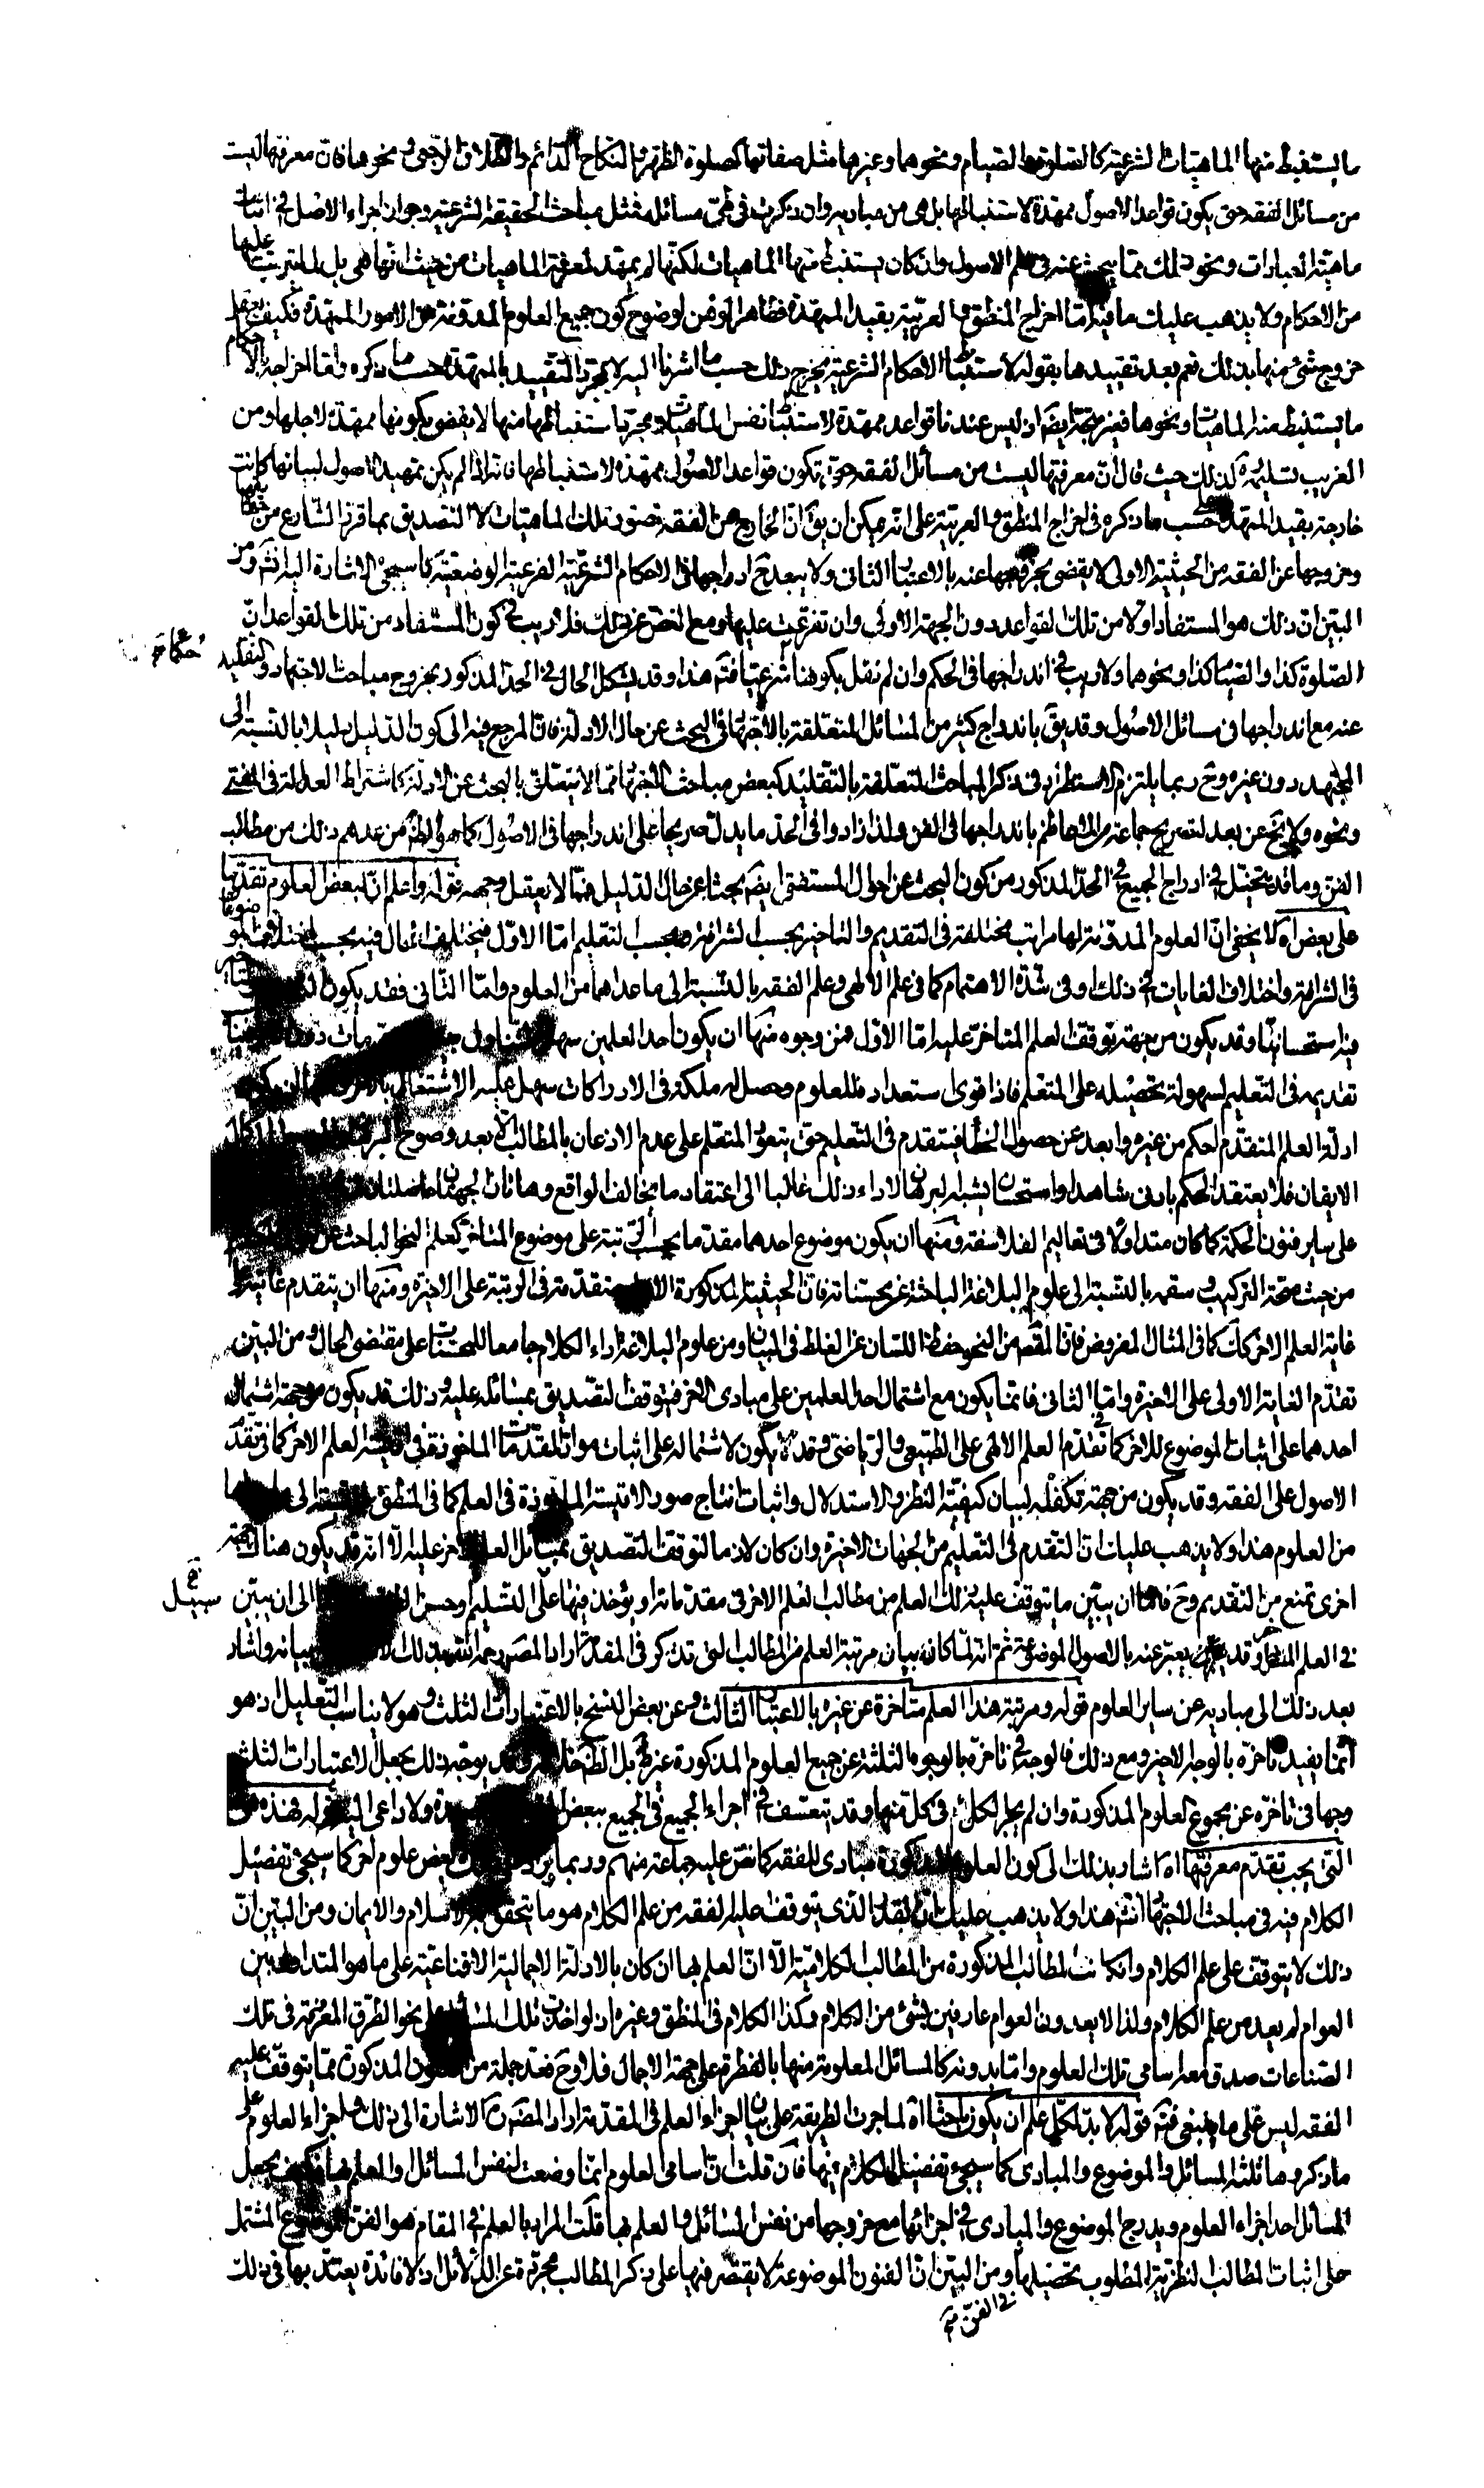 ما يستنبط منها الماهيات الشرعية كالصلوة والصيام ونحوهما وغيرها مثل صفاتها كصلوة الظهر والنكاح الدائم والطلاق الرجعى ونحوها فان معرفتها ليست
من مسائل الفقه حتى يكون قواعد الاصول ممهدة لاستنباطها بل هى من مباديه وان ذكرت فى طى مسائله فمثل مباحث الحقيقة الشرعية وجواز اجراء الاصل فى اثبات
ماهية العبادات ونحو ذلك مما يبحث عنه فى علم الاصول وان كان يستنبط منها الماهيات لكنها لم يمهد لمعرفة الماهيات من حيث انها هى بل لما يترتب عليها
من الاحكام ولا يذهب عليك ما فيه اما اخراج المنطق والعربية بقيد الممهدة فظاهر الوهن لوضوح كون جميع العلوم المدونة من الامور الممهدة فكيف يعقل
خروج شئ منها بذلك نعم بعد تقييدها بقوله لاستنباط الاحكام الشرعية يخرج ذلك حسب ما اشرنا اليه لا بمجرد التقييد بالممهدة حسب ما ذكره واما اخراجه بالاحكام
ما يستنبط منه الماهيات ونحوها فغير متجه ايضا اذ ليس عندنا قواعد ممهدة لاستنباط نفس الماهيات ومجرد استنباطها منها لا يقضى بكونها ممهدة لاجلها ومن
الغريب تسليمه لذلك حيث قال ان معرفتها ليست من مسائل الفقه حتى تكون قواعد الاصول ممهدة لاستنباطها فانه اذا لم يكن تمهيد الاصول لبيانها كانت
خارجة بقيد الممهدة على حسب ما ذكره فى اخراج المنطق والعربية على انه يمكن ان يق ان الخارج من الفقه تصور تلك الماهيات لا التصديق بما قرره الشارع من
وخروجها عن الفقه من الحيثية الاولى لا يقضى بخروجها عنه بالاعتبار الثانى ولا يبعد ح ادراجها فى الاحكام الشرعية الفرعية الوضعية كما سيجئ الاشارة اليه انش ومن
البين ان ذلك هو المستفاد اولا من تلك القواعد دون الجهة الاولى وان تفرعت عليها ومع الغض عن ذلك فلا ريب فى كون المستفاد من تلك القواعد ان
الصلوة كذا والصيام كذا ونحوهما ولا ريب فى اندراجها فى الحكم وان لم نقل بكونها شرعيا فتم هذا وقد يشكل الحال فى الحد المذكور بخروج مباحث الاجتهاد والتقليد
عنه مع اندراجها فى مسائل الاصول وقد يق باندراج كثير من المسائل المتعلقة بالاجتهاد فى البحث عن حال الادلة فان المرجع فيه الى كون الدليل دليلا بالنسبة الى
المجتهد دون غيره وح ربما يلتزم الاستطراد فى ذكر المباحث المتعلقة بالتقليد كبعض مباحث الاجتهاد مما لا يتعلق بالبحث عن الادلة كاشتراط العدالة فى المفتى
ونحوه ولا يخ عن بعد لتصريح جماعة من الاعاظم باندراجها فى الفن ولذا زادوا فى الحد ما يدل صريحا على اندراجها فى الاصول كما هو الظ من عدهم ذلك من مطالب
الفن وما قد يتخيل فى ادراج الجميع فى الحد المذكور من كون البحث عن احوال المستفتى ايضا بحثا عن حال الدليل فمما لا يعقل وجهه قوله واعلم ان لبعض العلوم تقدما
على بعض اه لا يخفى ان العلوم المدونة لها مراتب مختلفة فى التقديم والتاخير بحسب الشرافة وبحسب التعليم اما الاول فيختلف الحال فيه بحسب اختلاف الموضوعات
فى الشرافة واختلاف الغايات فى ذلك وفى شدة الاهتمام كما فى علم الالهى وعلم الفقه بالنسبة الى ما عداهما من العلوم واما الثانى فقد يكون
فيه استحسانيا وقد يكون من جهة توقف العلم المتاخر عليه اما الاول فمن وجوه منها ان يكون احد العلمين سهل التناول
تقديمه فى التعليم لسهولة تحصيله على المتعلم فاذا قوى استعداده للعلوم وحصل له ملكة فى الادراكات سهل عليه الاشتغال
ادلة العلم المتقدم احكم من غيره وابعد عن حصول الخطأ فيتقدم فى التعليم حتى يتعود المتعلم على عدم الاذعان بالمطالب الا بعد وضوح
الايقان فلا يعتقد الحكم بادنى شاهد او استحسان يشبه البرهان لاداء ذلك غالبا الى اعتقاد ما يخالف الواقع وهاتان الجهتان حاصلتان
على ساير فنون الحكمة كما كان متداولا فى تعاليم الفلاسفة ومنها ان يكون موضوع احدهما مقدما بحسب الرتبة على موضوع المتاخر كعلم النحو الباحث عن
من حيث صحة التركيب وسقمه بالنسبة الى علوم البلاغة الباحثة عن محسناته فان الحيثية المذكورة متقدمة فى الرتبة على الاخيرة ومنها ان يتقدم غايته
غاية العلم الاخر كك كما فى المثال المفروض فان المقصود من النحو حفظ اللسان عن الغلط فى البيان ومن علوم البلاغة اداء الكلام جامعا للمحسنات على مقتضى الحال ومن البين
تقدم الغاية الاولى على الاخيرة واما الثانى فانما يكون مع اشتمال احد العلمين على مبادى الاخر فيتوقف التصديق بمسائله عليه وذلك قد يكون من جهة اشتمال
احدهما على اثبات الموضوع للاخر كما فى تقدم العلم الالهى على الطبيعى والرياضى وقد يكون لاشتماله على اثبات مواد المقدمات الماخوذة فى اقيسة العلم الاخر كما فى تقدم
الاصول على الفقه وقد يكون من جهة تكفله لبيان كيفية النظر والاستدلال واثبات انتاج صور الاقيسة الماخوذة فى العلم كما فى المنطق بالنسبة الى ما عداها
من العلوم هذا ولا يذهب عليك ان التقدم فى التعليم من الجهات الاخيرة وان كان لازما لتوقف التصديق بمسائل العلم الاخر عليه الا انه قد يكون هناك جهة
اخرى تمنع من التقديم وح فاما ان يبين ما يتوقف عليه ذلك العلم من مطالب العلم الاخر فى مقدماته او يؤخذ فيها على سبيل التسليم وحسن الى ان يبين
فى العلم الاخر وقد يعبر عنه بالاصول الموضوعة ثم انه لما كان بيان مرتبة العلم من المطالب التى تذكر فى المقدمة اراد المصنف رحمه الله بذلك بيانه واشار
بعد ذلك الى مباديه عن ساير العلوم قوله ومرتبة هذا العلم متاخرة عن غيره بالاعتبار الثالث وعن بعض النسخ بالاعتبارات الثلث وهو لا يناسب التعليل اذ هو
انما يفيد تاخره بالوجه الاخير ومع ذلك فالوجه فى تاخره بالوجوه الثلثة عن جميع العلوم المذكورة غير ظ بل الظ خلافه وقد يوجه ذلك بجعل الاعتبارات الثلث
وجها فى تاخره عن مجموع العلوم المذكورة وان لم يجر الكل فى كل منها وقد يتعسف فى اجراء الجميع فى الجميع ببعض ولا داعى اليه قوله فهذه هى
التى يجب تقدم معرفتها اه اشار بذلك الى كون العلوم المذكورة مبادى للفقه كما نص عليه جماعة منهم وربما يزاد بعض علوم اخر كما سيجئ تفصيل
الكلام فيه فى مباحث الاجتهاد انش هذا ولا يذهب عليك ان القدر الذى يتوقف عليه الفقه من علم الكلام هو ما يتحقق به الاسلام والايمان ومن البين ان
ذلك لا يتوقف على علم الكلام وان كانت المطالب المذكورة من المطالب الكلامية الا ان العلم بها ان كان بالادلة الاجمالية الاقناعية على ما هو المتداول بين
العوام لم يعد من علم الكلام ولذا لا يعدون العوام عارفين بشئ من الكلام وكذا الكلام فى المنطق وغيره اذ لو اخذت تلك المسائل على نحو الطرق المعروفة فى تلك
الصناعات صدق معه اسامى تلك العلوم واما بدونه كالمسائل المعلومة منها بالفطرة على جهة الاجمال فلا وح فعد جملة من الفنون المذكورة مما يتوقف عليه
الفقه ليس على ما ينبغى فتم قوله لا بد لكل علم ان يكون باحثا اه لما جرت الطريقة على بيان اجزاء العلم فى المقدمة اراد المصنف ره الاشارة الى ذلك واجزاء العلوم على
ما ذكروها ثلثة المسائل والموضوع والمبادى كما سيجئ تفصيل الكلام فيها فان قلت ان اسامى العلوم انما وضعت لنفس المسائل او العلم بها فكيف يجعل
المسائل احد اجزاء العلوم ويدرج الموضوع والمبادى فى اجزائها مع خروجها من نفس المسائل والعلم بها قلت المراد بالعلم فى المقام هو الفن الموضوع المشتمل
على اثبات المطالب النظرية المطلوب تحصيلها ومن البين ان الفنون الموضوعة لا يقتصر فيها على ذكر المطالب مجردة عن الدلائل اذ لا فائدة يعتد بها فى ذلك
فى الفن